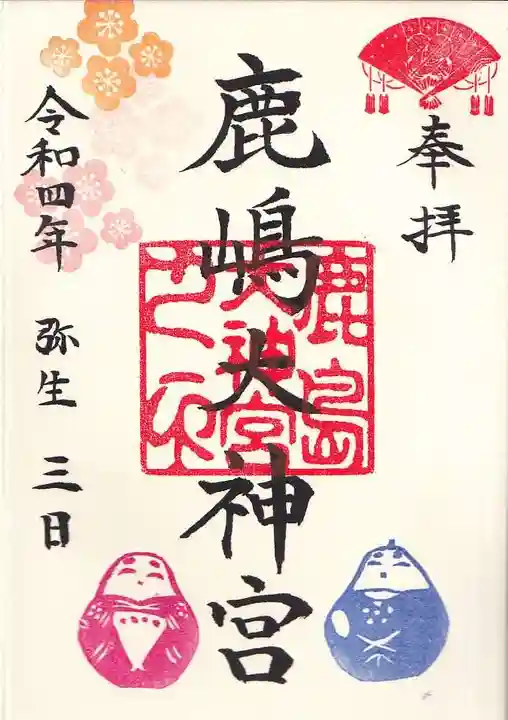 奉拝
鹿嶋大神宮
鹿島
大神宮
令和四年 弥生 三日